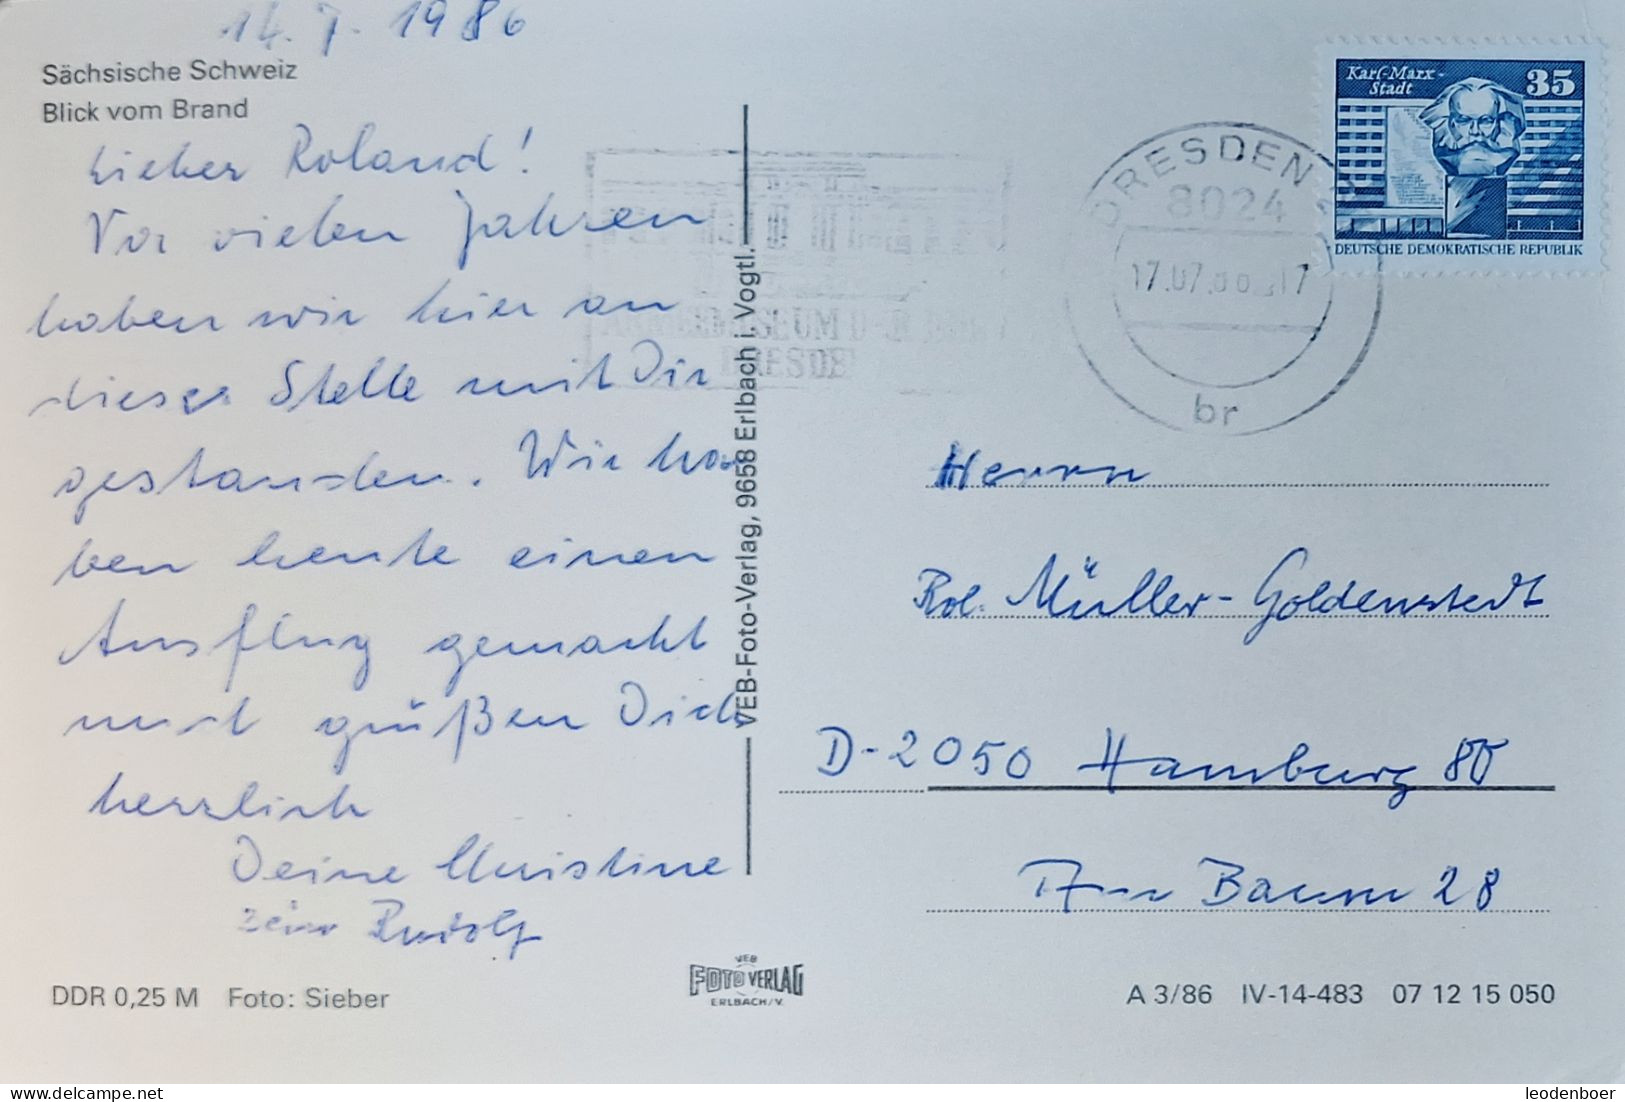 14. 7. 1986
Sächsische Schweiz
Blick vom Brand
Lieber Roland!
Vor vielen Jahren
haben wir hier an
dieser Stelle mit Dir
gestanden. Wir ha-
ben heute einen
Ausflug gemacht
und grüßen Dich
herzlich
Deine Christine
Dein Rudolf
DDR 0,25 M Foto: Sieber
VEB-Foto-Verlag, 9658 Erlbach i. Vogtl.
VEB
FOTO VERLAG
ERLBACH/V.
ARMEEMUSEUM DER DDR
DRESDEN
DRESDEN
8024
17.07.86.17
br
Karl-Marx-
Stadt
35
DEUTSCHE DEMOKRATISCHE REPUBLIK
Herrn
Rol. Müller-Goldenstedt
D-2050 Hamburg 80
Am Baum 28
A 3/86 IV-14-483 07 12 15 050
leodenboer